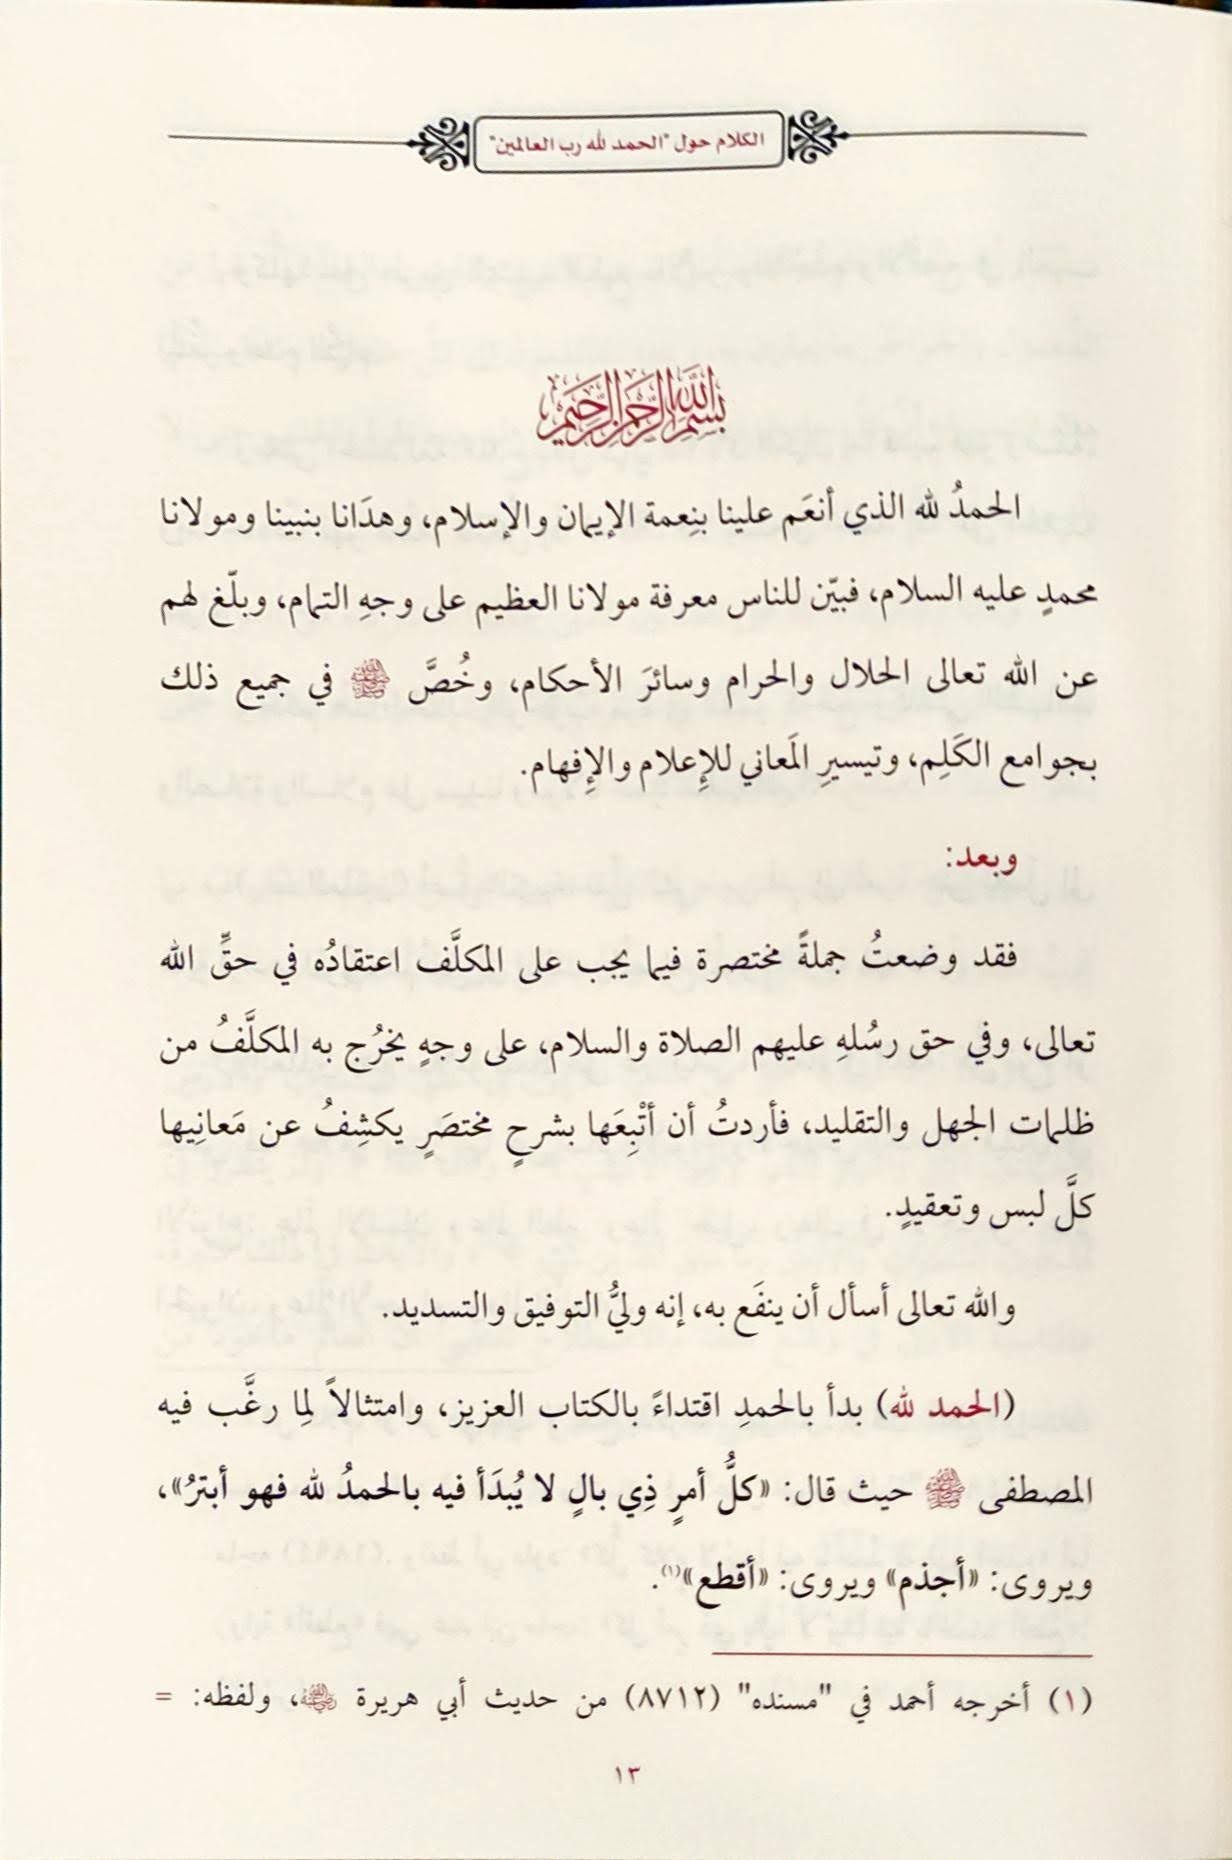 الكلام حول "الحمد لله رب العالمين"
بسم الله الرحمن الرحيم
الحمدُ لله الذي أنعَم علينا بنِعمة الإيمان والإسلام، وهدَانا بنبينا ومولانا
محمدٍ عليه السلام، فبيّن للناس معرفة مولانا العظيم على وجهِ التمام، وبلّغ لهم
عن الله تعالى الحلال والحرام وسائرَ الأحكام، وخُصَّ ﷺ في جميع ذلك
بجوامع الكَلِم، وتيسيرِ المَعاني للإعلام والإفهام.
وبعد:
فقد وضعتُ جملةً مختصرة فيما يجب على المكلَّف اعتقادُه في حقِّ الله
تعالى، وفي حق رسُلهِ عليهم الصلاة والسلام، على وجهٍ يخرُج به المكلَّفُ من
ظلمات الجهل والتقليد، فأردتُ أن أتْبِعَها بشرحٍ مختصَرٍ يكشِفُ عن مَعانِيها
كلَّ لبس وتعقيدٍ.
والله تعالى أسأل أن ينفَع به، إنه وليُّ التوفيق والتسديد.
(الحمد لله) بدأ بالحمدِ اقتداءً بالكتاب العزيز، وامتثالاً لِما رغَّب فيه
المصطفى ﷺ حيث قال: «كلُّ أمرٍ ذِي بالٍ لا يُبدَأ فيه بالحمدُ لله فهو أبترُ»،
ويروى: «أجذم» ويروى: «أقطع»(١).
(١) أخرجه أحمد في "مسنده" (٨٧١٢) من حديث أبي هريرة رضي الله عنه، ولفظه: =
١٣